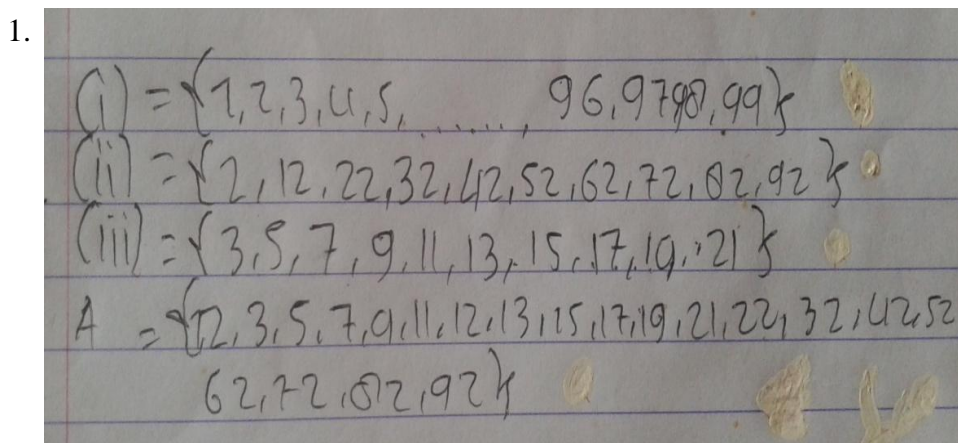 1.
(i) = {1,2,3,4,5,.......,96,97,98,99}
(ii) = {2,12,22,32,42,52,62,72,82,92}
(iii) = {3,5,7,9,11,13,15,17,19,21}
A = {2,3,5,7,9,11,12,13,15,17,19,21,22,32,42,52
62,72,82,92}